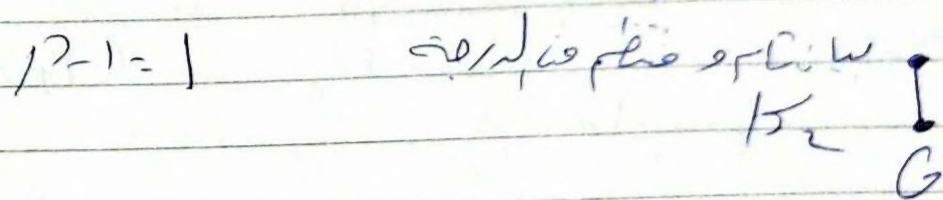 بيان تام و منتظم من الدرجة P-1=1
K₂
G